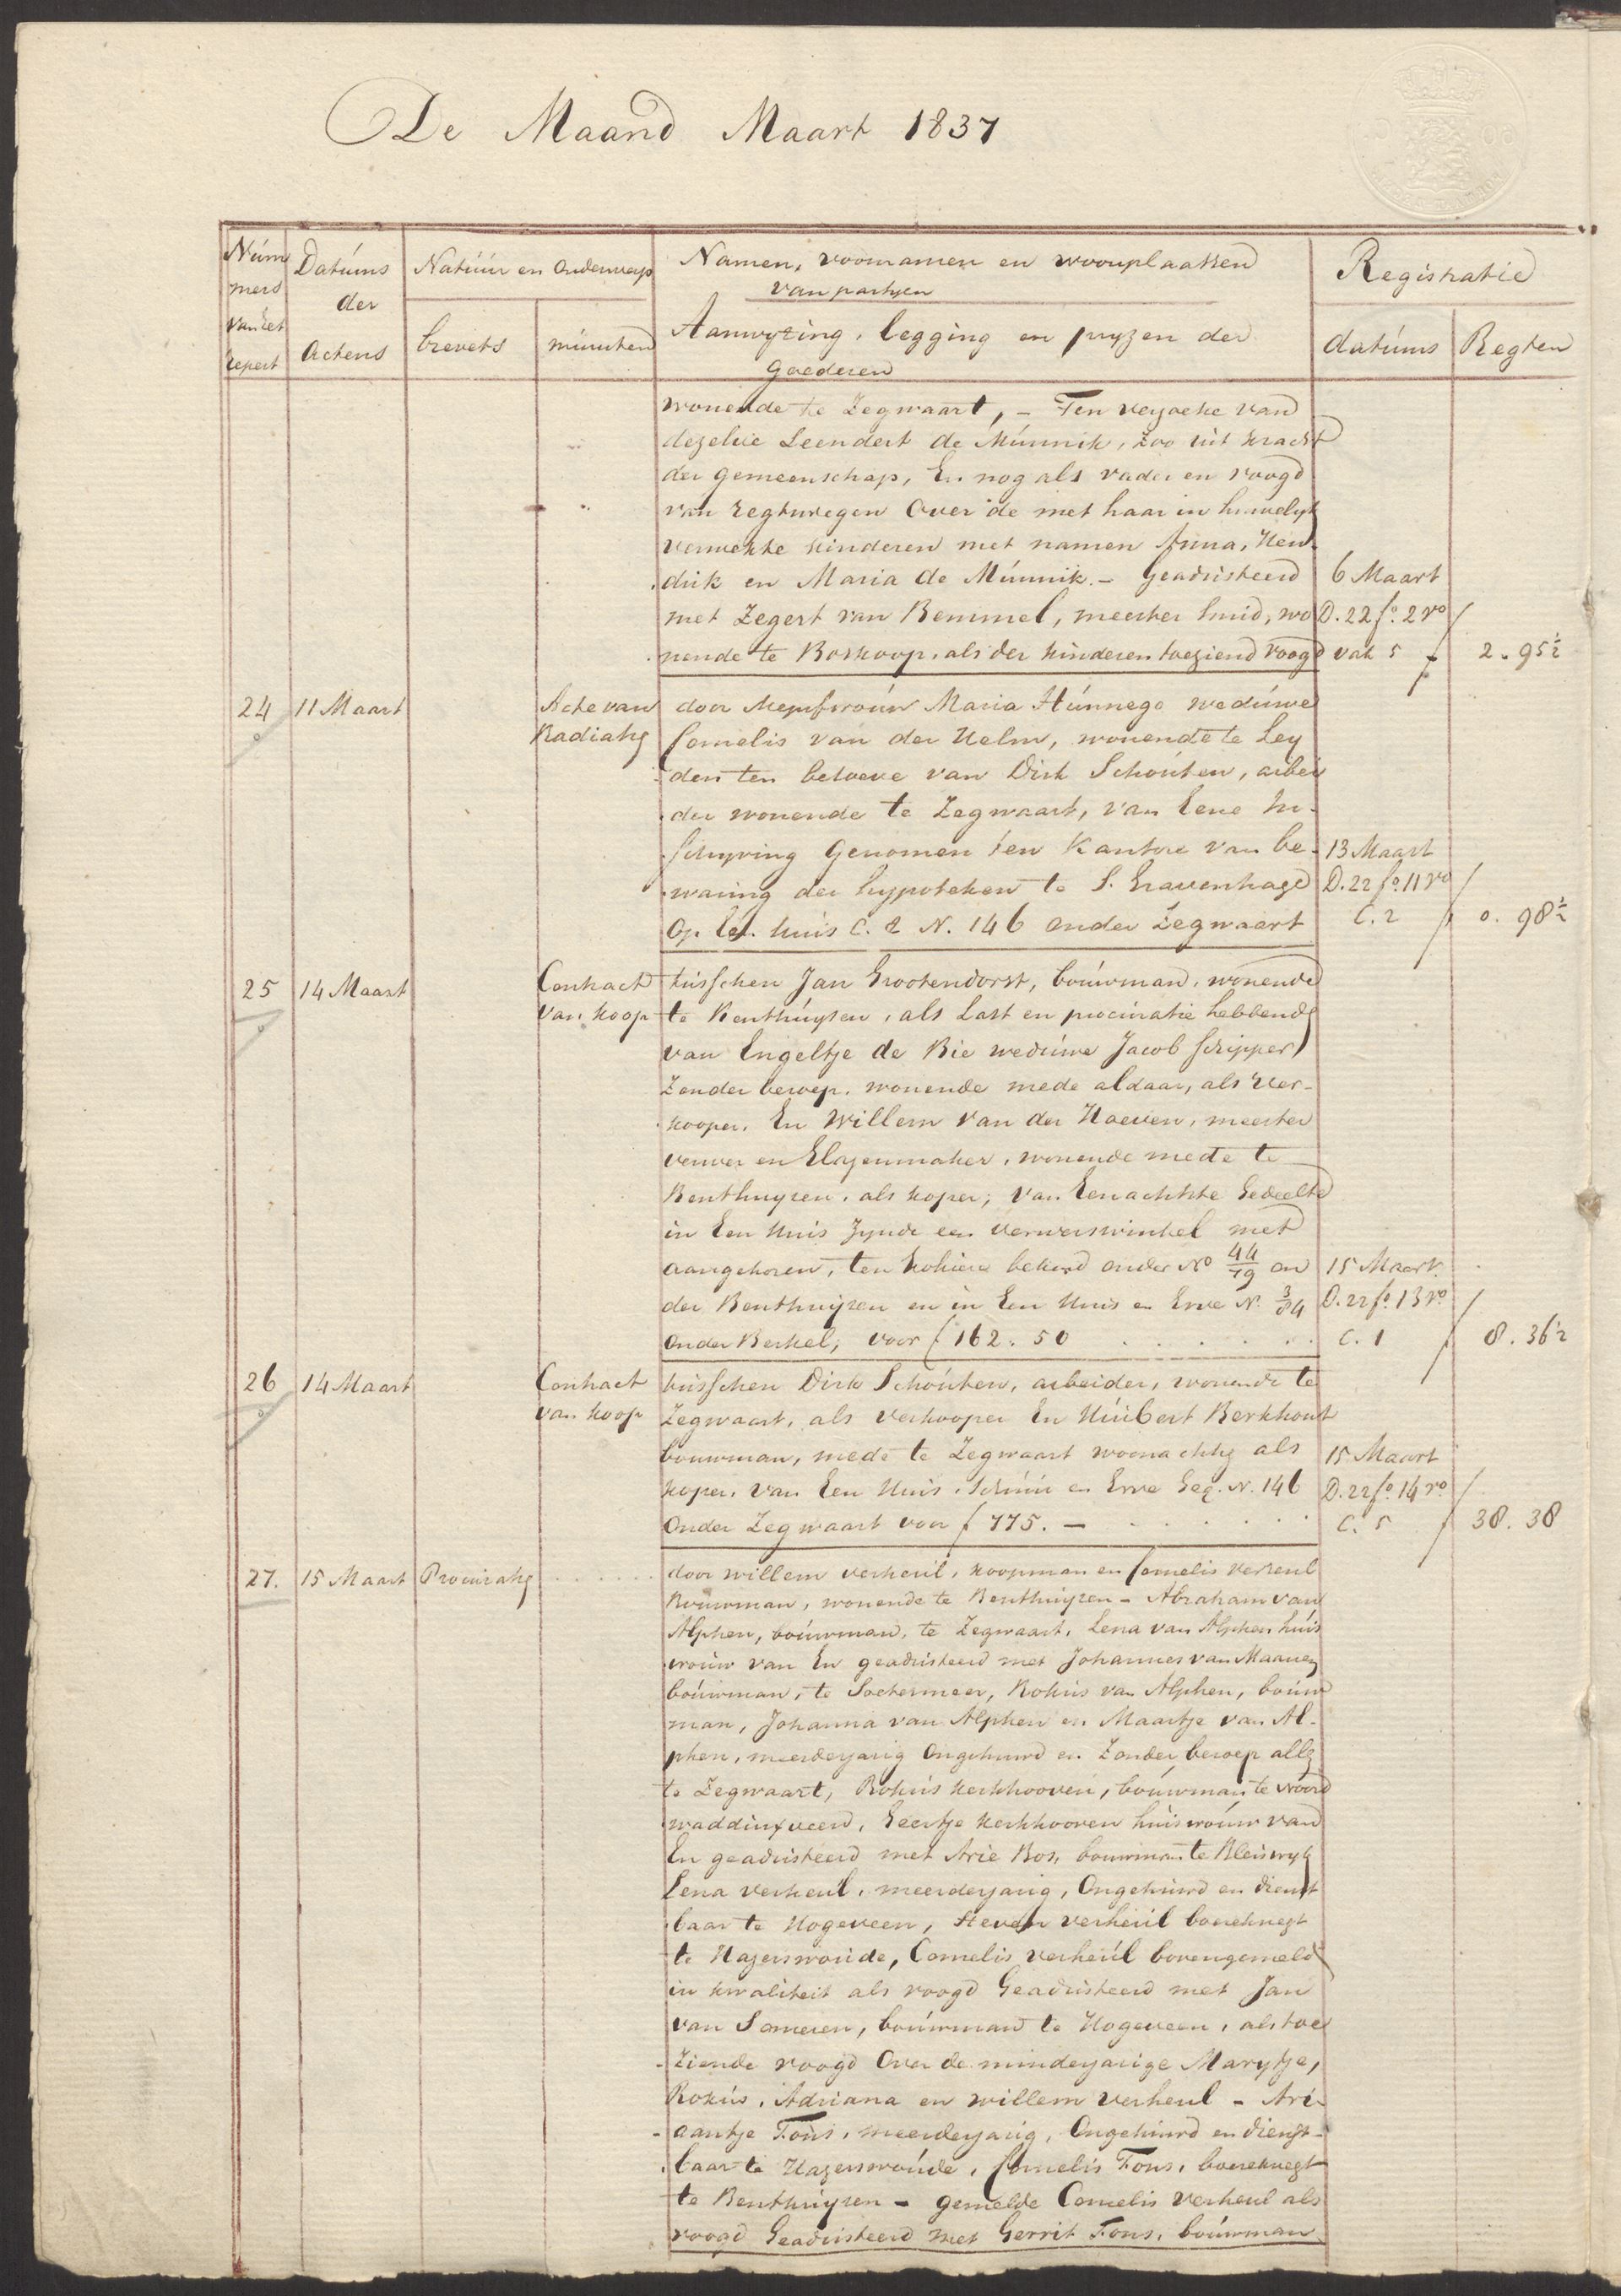 De Maand Maart 1837
Num
mers
van het
repert
Datums
der
Actens
Natuur en Onderwerp
brevets
minuten
Namen, voornamen en woonplaatsen
van partyen
Aanwyzing, legging en pryzen der
Goederen
Registratie
datums
Regten
wonende te Zegwaart, - Ten verzoeke van
dezelve Leendert de Munnik, zoo uit kracht
der gemeenschap, En nog als vader en voogd
van regtswegen Over de met haar in huwelyk
verwekte kinderen met namen Anna, Hen
drik en Maria de Munnik. - Geadsisteerd
met Zegert van Bemmel, meester smid, wo
nende te Boskoop, als der kinderen toeziend voogd
6 Maart
D. 22 fo. 2 vo
vak 5
2. 95½
24
11 Maart
Acte van
Radiatie
door Mejufvrouw Maria Hunnego weduwe
Cornelis van der Helm, wonende te Ley
den ten behoeve van Dirk Schouten, arbei
der wonende te Zegwaart, van Eene In-
schryving Genomen ten Kantore van be-
waring der hypoteken te S. Gravenhage
Op het huis C. 2 N. 146 onder Zegwaart
13 Maart
D. 22 fo. 11 vo
C. 2
0. 98½
25
14 Maart
Contract
van koop
tusschen Jan Grootendorst, bouwman, wonende
te Benthuyzen, als Last en procuratie hebbende
van Engeltje de Bie weduwe Jacob Schipper,
Zonder beroep, wonende mede aldaar, als Ver-
kooper, En Willem van der Hoeven, meester
verwer en Glazenmaker, wonende mede te
Benthuyzen, als koper; van Een achtste Gedeelte
in Een Huis zynde een verwerswinkel met
aangehoren, ten kohiere bekend onder No 44/79 on
der Benthuyzen en in Een Huis en Erve N. 3/84
onder Berkel, voor f 162. 50
15 Maart.
D. 22 fo. 13 vo.
C. 1
8. 36½
26
14 Maart
Contract
van koop
tusschen Dirk Schouten, arbeider, wonende te
Zegwaart, als verkooper En Huibert Berkhout
bouwman, mede te Zegwaart woonachtig als
koper, van Een Huis, Schuur en Erve Geq. N. 146
Onder Zegwaart voor f 775. -
15 Maart
D. 22 fo. 14 vo
C. 5
38. 38
27.
15 Maart
Procuratie
door willem verheul, koopman en Cornelis verheul
Bouwman, wonende te Benthuyzen - Abraham van
Alphen, bouwman, te Zegwaart, Lena van Alphen huis
vrouw van En geadsisteerd met Johannes van Maanen
bouwman, te Soetermeer, Rokus van Alphen, bouw
man, Johanna van Alphen en Maartje van Al-
phen, meerderjarig Ongehuwd en Zonder beroep alle
te Zegwaart, Rokus Kerkhooven, bouwman te Noord
waddinxveen, Geertje Kerkhooven huisvrouw van
En geadsisteerd met Arie Bos, bouwman te Bleiswyk
Lena verheul, meerderjarig, Ongehuwd en dienst
baar te Hogeveen, Steven verheul boereknegt
te Hazerswoude, Cornelis verheul bovengemeld
in kwaliteit als voogd Geadsisteerd met Jan
van Someren, bouwman te Hogeveen, als toe
ziende voogd Over de minderjarige Marytje,
Rokus, Adriana en willem verheul - Ari-
aantje Fons, meerderjarig, Ongehuwd en dienst-
baar te Hazerswoude, Cornelis Fons, boereknegt
te Benthuyzen - gemelde Cornelis Verheul als
voogd Geadsisteerd met Gerrit Fons, bouwman